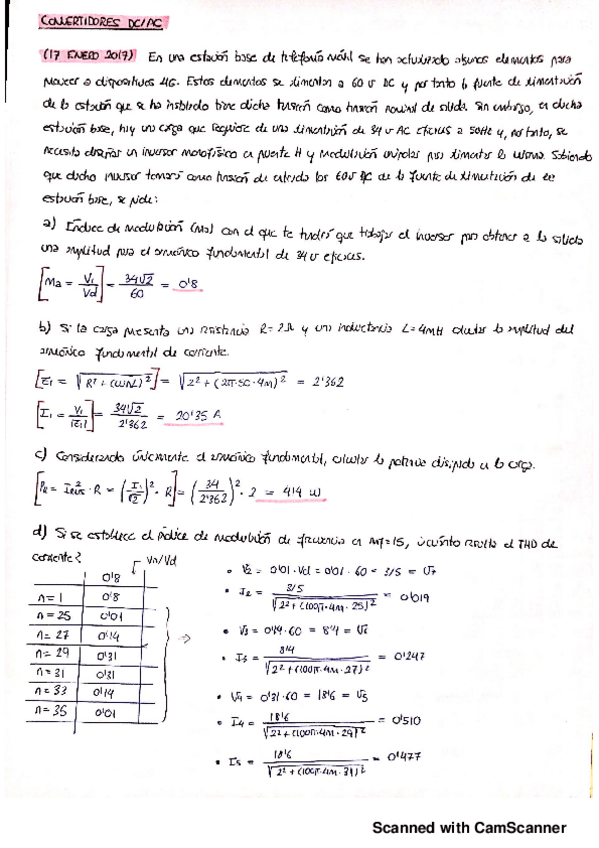 CONVERTIDORES DC/AC
(17 ENERO 2017) En una estación base de telefonía móvil se han actualizado algunos elementos para
proveer a dispositivos 4G. Estos elementos se alimentan a 60 v DC y por tanto la fuente de alimentación
de la estación que se ha instalado tiene dicha tensión como tensión nominal de salida. Sin embargo, en dicha
estación base, hay una carga que requiere de una alimentación de 34 v AC eficaces a 50Hz y, por tanto, se
necesita diseñar un inversor monofásico en puente H y modulación unipolar para alimentar la misma. Sabiendo
que dicho inversor tomará como tensión de entrada los 60v DC de la fuente de alimentación de
estación base, se pide:
a) Índice de modulación (ma) con el que te tendrá que trabajar el inversor para obtener a la salida
una amplitud para el armónico fundamental de 34 v eficaces.
[Ma = V1/Vd] = 34√2/60 = 0'8
b) Si la carga presenta una resistencia R = 2Ω y una inductancia L = 4mH calcular la amplitud del
armónico fundamental de corriente.
[Z1 = √(R² + (WNL)²)] = √(2² + (2π·50·4m)²) = 2'362
[I1 = V1/|Z1|] = 34√2/2'362 = 20'35 A
c) Considerando únicamente el armónico fundamental, calcular la potencia disipada en la carga.
[PR = Irms² · R = (I1/√2)² · R] = (34/2'362)² · 2 = 414 W
d) Si se establece el índice de modulación de frecuencia en mf = 15, ¿cuánto resulta el THD de
corriente?
Vn/Vd
0'8
n = 1 0'8
n = 25 0'01
n = 27 0'14
n = 29 0'31
n = 31 0'31
n = 33 0'14
n = 35 0'01
• V2 = 0'01 · Vd = 0'01 · 60 = 3/5 = V7
• I2 = 3/5 / √(2² + (100π·4m·25)²) = 0'019
• V3 = 0'14·60 = 8'4 = V6
• I3 = 8'4 / √(2² + (100π·4m·27)²) = 0'247
• V4 = 0'31·60 = 18'6 = V5
• I4 = 18'6 / √(2² + (100π·4m·29)²) = 0'510
• I5 = 18'6 / √(2² + (100π·4m·31)²) = 0'477
Scanned with CamScanner